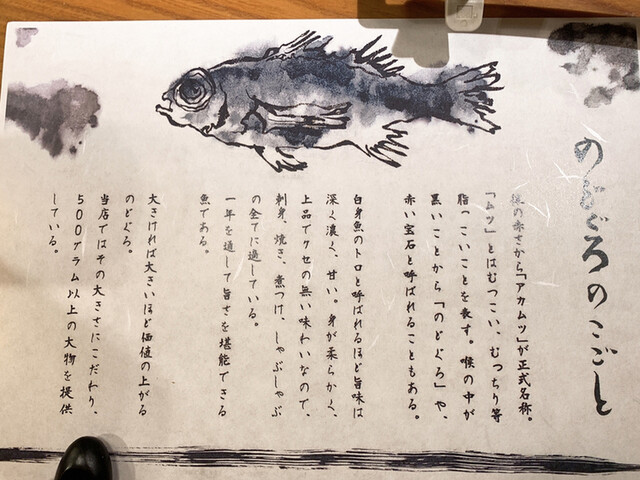 のどぐろのこごと
体の赤さから「アカムツ」が正式名称。
「ムツ」とはむつこい、むっちり等
脂っこいことを表す。喉の中が
黒いことから「のどぐろ」や、
赤い宝石と呼ばれることもある。
白身魚のトロと呼ばれるほど旨味は
深く濃く、甘い。身が柔らかく、
上品でクセの無い味わいなので、
刺身、焼き、煮つけ、しゃぶしゃぶ
の全てに適している。
一年を通して旨さを堪能できる
魚である。
大きければ大きいほど価値の上がる
のどぐろ。
当店ではその大きさにこだわり、
500グラム以上の大物を提供
している。